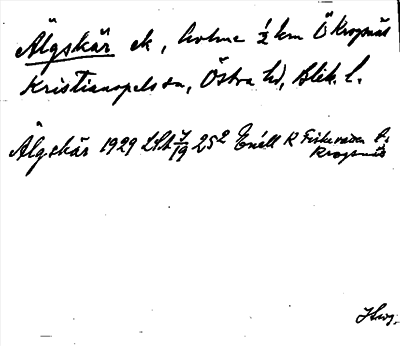 Älgskär ek, holme ½ km Ö Krogsnäs
Kristianopels sn, Östra hd, Blek. l.
Älgskär 1929 LSA 7/19 25² Enéll K Fiskevaten
Krogsnäs